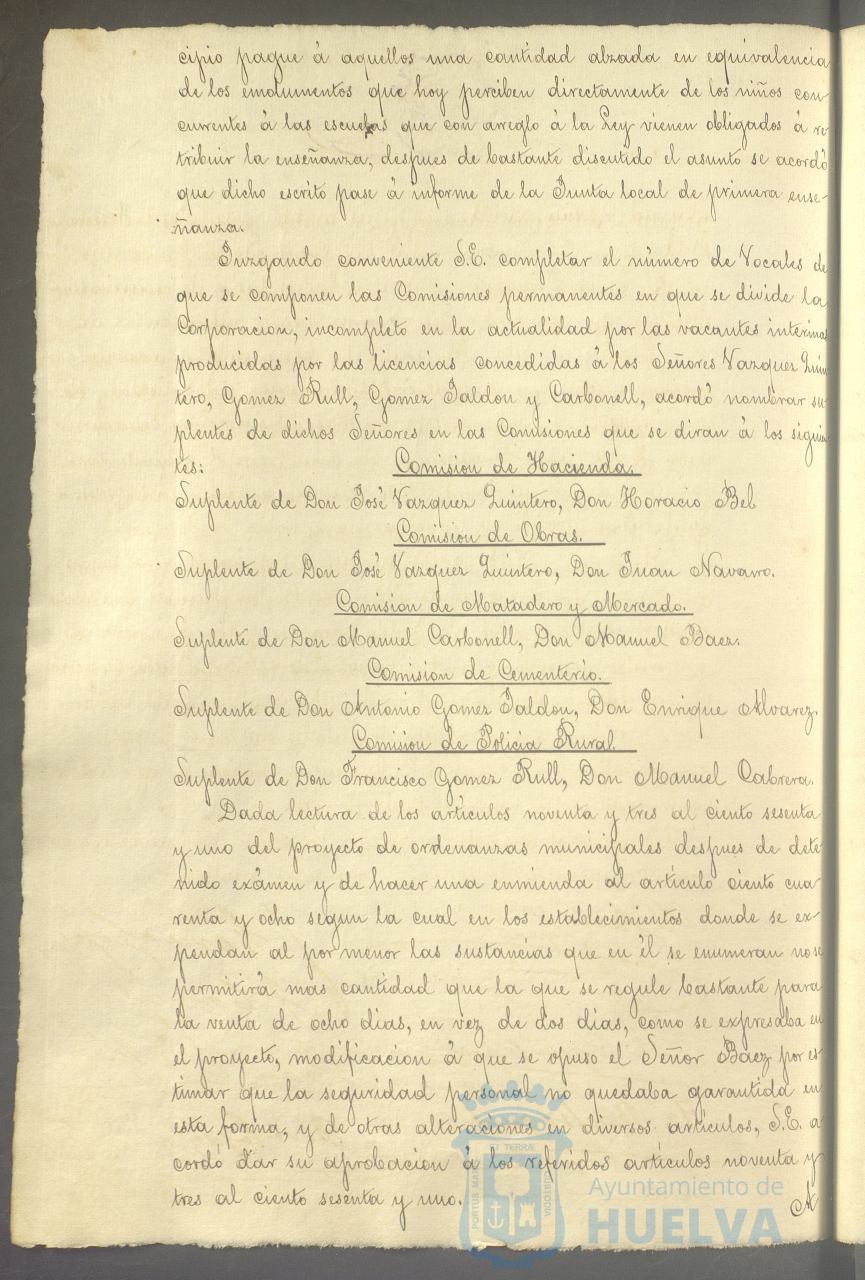 cipio pague á aquellos una cantidad alzada en equivalencia
de los emolumentos que hoy perciben directamente de los niños con-
currentes á las escuelas que con arreglo á la Ley vienen obligados á re
tribuir la enseñanza, despues de bastante discutido el asunto se acordó
que dicho escrito pase á informe de la Junta local de primera ense-
ñanza.
Juzgando conveniente S.E. completar el número de Vocales de
que se componen las Comisiones permanentes en que se divide la
Corporacion, incompleto en la actualidad por las vacantes interinas
producidas por las licencias concedidas á los Señores Vazquez Quin
tero, Gomez Rull, Gomez Jaldon y Carbonell, acordó nombrar su-
plentes de dichos Señores en las Comisiones que se diran á los siguien
tes: Comision de Hacienda.
Suplente de Don José Vazquez Quintero, Don Horacio Bel
Comision de Obras.
Suplente de Don José Vazquez Quintero, Don Juan Navarro.
Comision de Matadero y Mercado.
Suplente de Don Manuel Carbonell, Don Manuel Baez.
Comision de Cementerio.
Suplente de Don Antonio Gomez Jaldon, Don Enrique Alvarez.
Comision de Policia Rural.
Suplente de Don Francisco Gomez Rull, Don Manuel Cabrera.
Dada lectura de los artículos noventa y tres al ciento sesenta
y uno del proyecto de ordenanzas municipales despues de dete
nido exámen y de hacer una enmienda al artículo ciento cua
renta y ocho segun la cual en los establecimientos donde se ex-
pendan al por menor las sustancias que en él se enumeran no se
permitirá mas cantidad que la que se regule bastante para
la venta de ocho dias, en vez de dos dias, como se expresaba en
el proyecto, modificacion á que se opuso el Señor Baez por es
timar que la seguridad personal no quedaba garantida en
esta forma, y de otras alteraciones en diversos artículos, S.E. a
cordó dar su aprobacion á los referidos artículos noventa y
tres al ciento sesenta y uno.
A
Ayuntamiento de
HUELVA